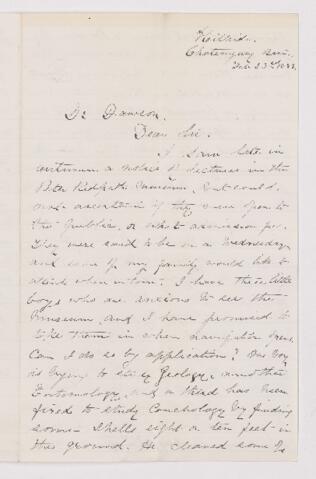 Chateauguay Basin
Feb 23rd 188
Dr Dawson.
Dear Sir.
I saw late in
a notice of lectures in the
Peter Redpath Museum, but could
not ascertain if they were open to
the public, or what admission fee.
They were said to be on a Wednesday
and some of my family would like to
attend when in town. I have three little
boys who are anxious to see the
Museum, and I have promised to
take them in when navigation opens.
Can I do so by application? One boy
is trying to study Geology, another
Entomology, and a third has been
fired to study Conchology by finding
some shells eight or ten feet in
the ground. He cleaned some of